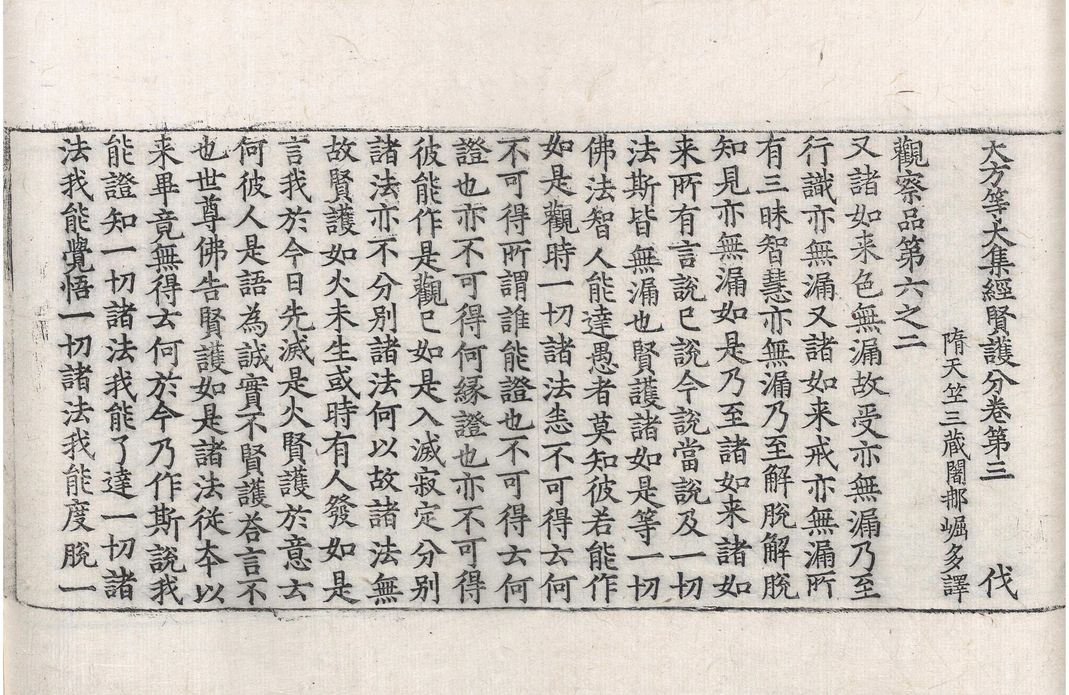 大方等大集經賢護分卷第三 伐
隋天竺三藏闍那崛多譯
觀察品第六之二
又諸如来色無漏故受亦無漏乃至
行識亦無漏又諸如来戒亦無漏所
有三昧智慧亦無漏乃至解脫解脫
知見亦無漏如是乃至諸如来諸如
来所有言說已說今說當說及一切
法斯皆無漏也賢護諸如是等一切
佛法智人能達愚者莫知彼若能作
如是觀時一切諸法悉不可得云何
不可得所謂誰能證也不可得云何
證也亦不可得何緣證也亦不可得
彼能作是觀已如是入滅寂定分别
諸法亦不分别諸法何以故諸法無
故賢護如火未生或時有人發如是
言我於今日先滅是火賢護於意云
何彼人是語為誠實不賢護荅言不
也世尊佛告賢護如是諸法從夲以
来畢竟無得云何於今乃作斯說我
能證知一切諸法我能了達一切諸
法我能覺悟一切諸法我能度脫一